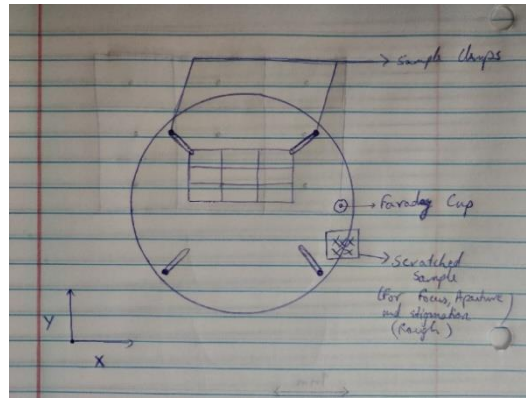 Sample Clamps
Faraday Cup
Scratched
Sample
(For Focus, Aperture
and stigmation
(Rough)
Y
X